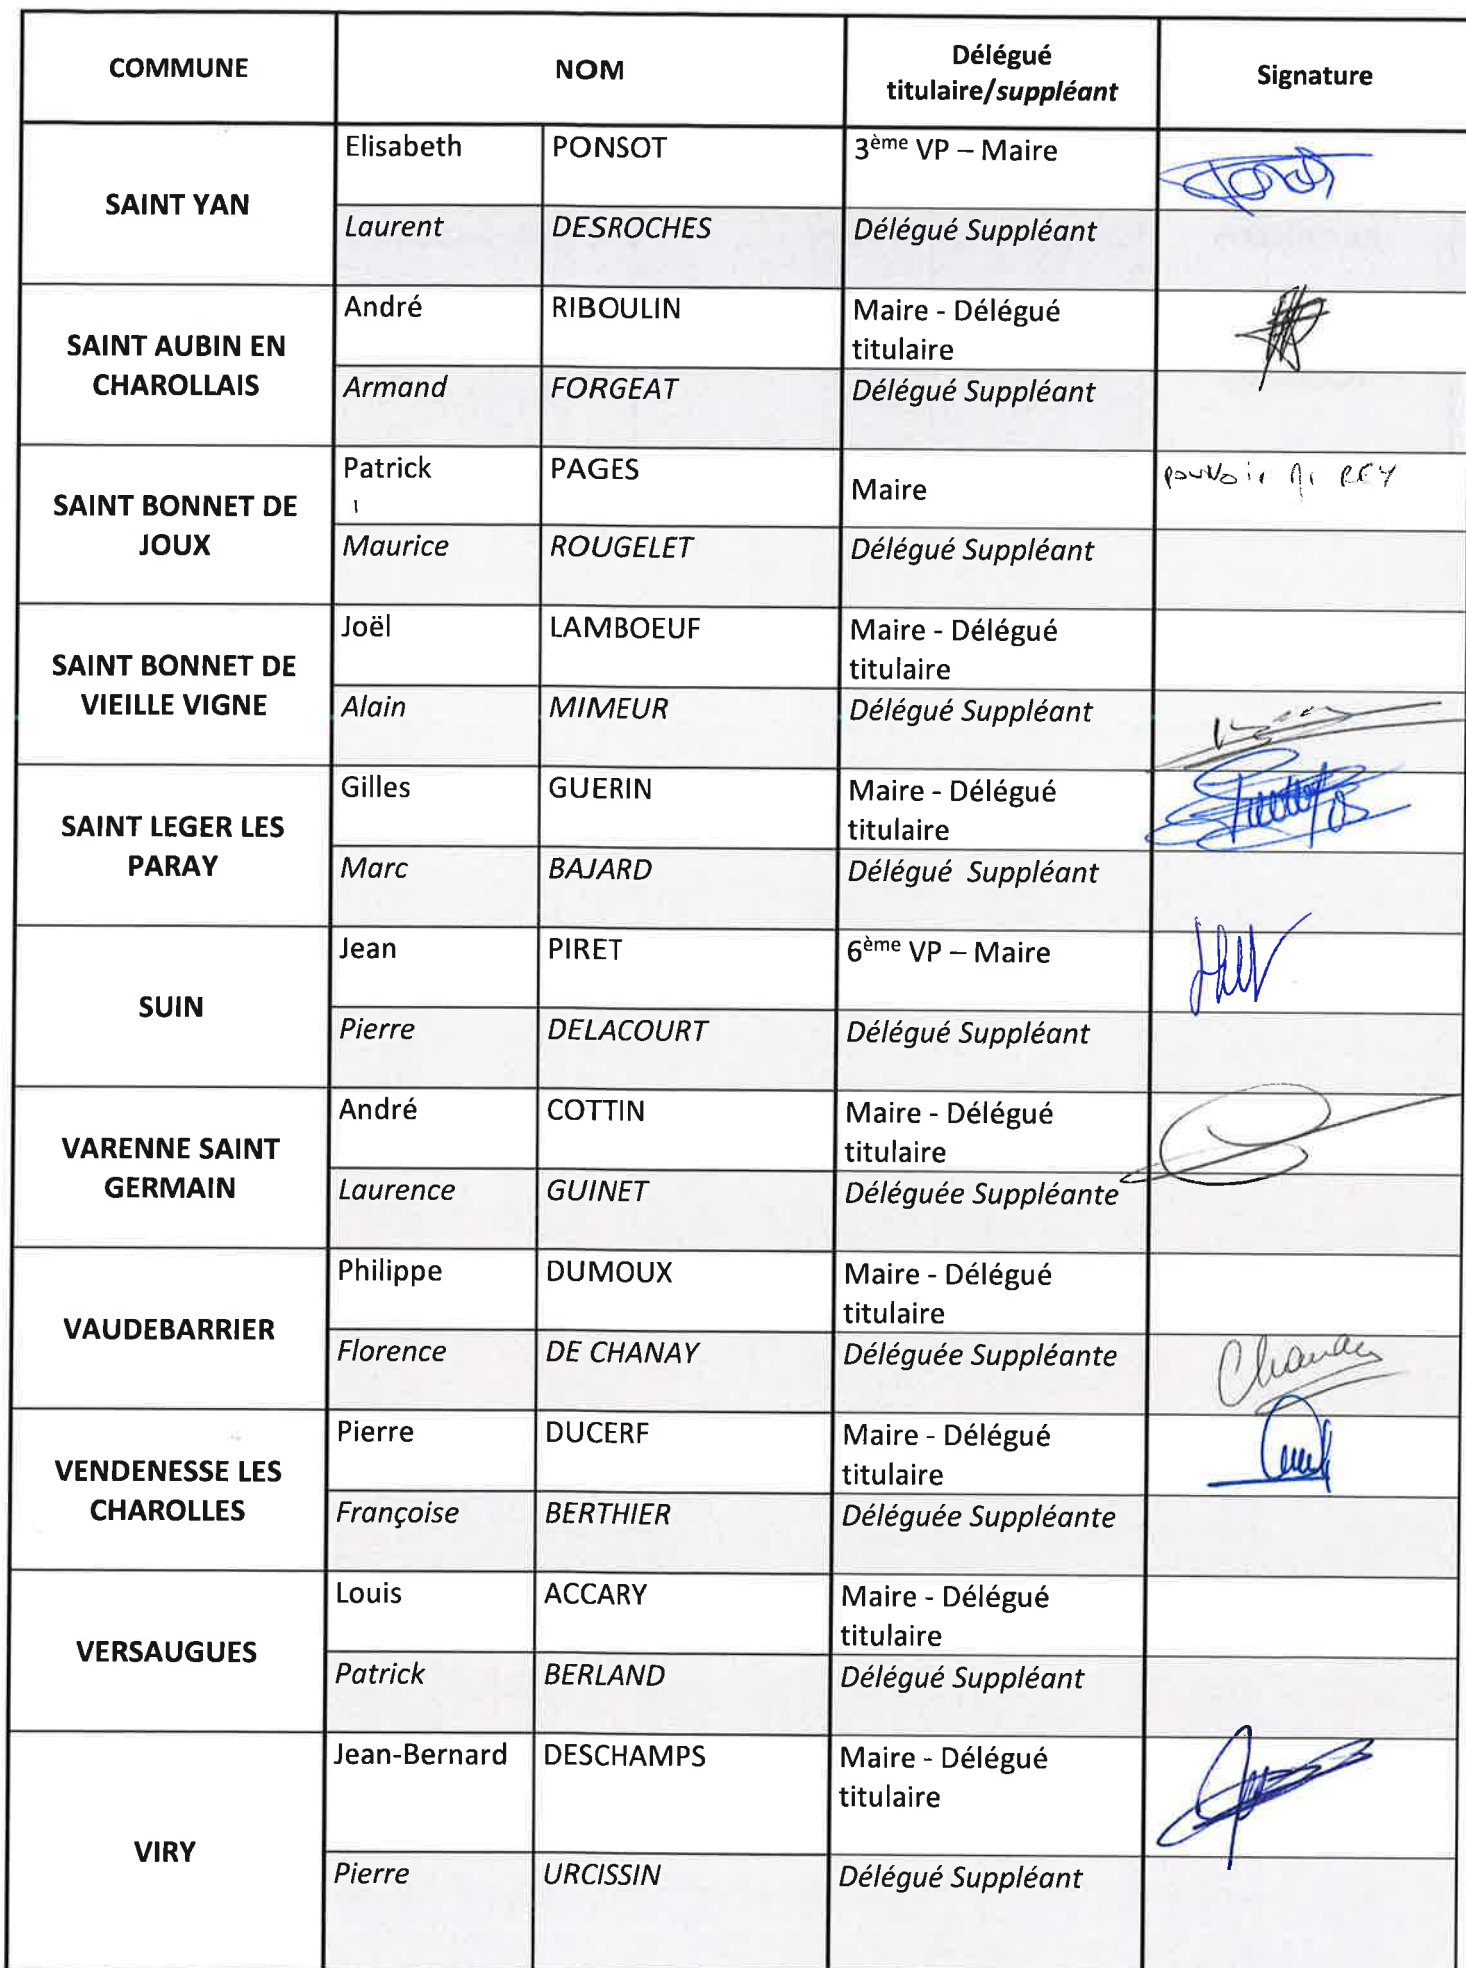 COMMUNE NOM Délégué titulaire/suppléant Signature
SAINT YAN
Elisabeth PONSOT 3ème VP – Maire
Laurent DESROCHES Délégué Suppléant
SAINT AUBIN EN
CHAROLLAIS
André RIBOULIN Maire - Délégué
titulaire
Armand FORGEAT Délégué Suppléant
SAINT BONNET DE
JOUX
Patrick PAGES Maire pouvoir REY
Maurice ROUGELET Délégué Suppléant
SAINT BONNET DE
VIEILLE VIGNE
Joël LAMBOEUF Maire - Délégué
titulaire
Alain MIMEUR Délégué Suppléant
SAINT LEGER LES
PARAY
Gilles GUERIN Maire - Délégué
titulaire
Marc BAJARD Délégué Suppléant
SUIN
Jean PIRET 6ème VP – Maire
Pierre DELACOURT Délégué Suppléant
VARENNE SAINT
GERMAIN
André COTTIN Maire - Délégué
titulaire
Laurence GUINET Déléguée Suppléante
VAUDEBARRIER
Philippe DUMOUX Maire - Délégué
titulaire
Florence DE CHANAY Déléguée Suppléante Chanay
VENDENESSE LES
CHAROLLES
Pierre DUCERF Maire - Délégué
titulaire
Françoise BERTHIER Déléguée Suppléante
VERSAUGUES
Louis ACCARY Maire - Délégué
titulaire
Patrick BERLAND Délégué Suppléant
VIRY
Jean-Bernard DESCHAMPS Maire - Délégué
titulaire
Pierre URCISSIN Délégué Suppléant